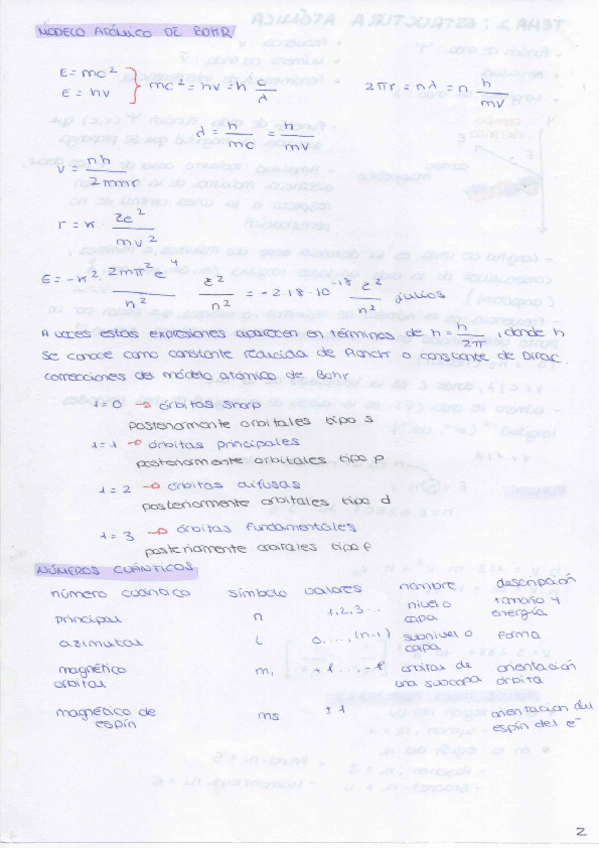 MODELO ATÓMICO DE BOHR
E = mc² } mc² = hν = h c/λ
E = hν
2πr = nλ = n h/mv
λ = h/mc = h/mv
v = nh/2πmr
r = κ · Ze²/mv²
E = -κ² · 2mπ²e⁴/h² z²/n² = -2.18·10⁻¹⁸ z²/n² julios
A veces estas expresiones aparecen en términos de ħ = h/2π, donde ħ
se conoce como constante reducida de Planck o constante de Dirac.
correcciones del modelo atómico de Bohr
l = 0 → órbitas sharp
posteriormente orbitales tipo s
l = 1 → órbitas principales
posteriormente orbitales tipo p
l = 2 → órbitas difusas
posteriormente orbitales tipo d
l = 3 → órbitas fundamentales
posteriormente orbitales tipo f
NÚMEROS CUÁNTICOS
número cuántico símbolo valores nombre descripción
principal n 1, 2, 3... nivel o capa tamaño y energía
azimutal l 0, ..., (n-1) subnivel o capa forma
magnético orbital m, +l...,-l orbital de una subcapa orientación órbita
magnético de espín ms orientación del espín del e⁻
2